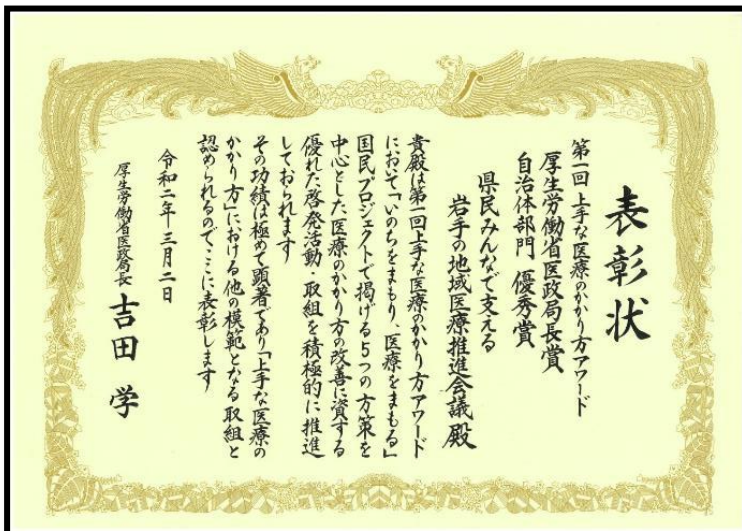 表彰状
第一回 上手な医療のかかり方アワード
厚生労働省医政局長賞
自治体部門 優秀賞
県民みんなで支える
岩手の地域医療推進会議 殿
貴殿は第一回上手な医療のかかり方アワード
において「いのちをまもり、医療をまもる」
国民プロジェクトで掲げる5つの方策を
中心とした医療のかかり方の改善に資する
優れた啓発活動・取組を積極的に推進
しておられます
その功績は極めて顕著であり「上手な医療の
かかり方」における他の模範となる取組と
認められるのでここに表彰します
令和二年三月二日
厚生労働省医政局長 吉田 学